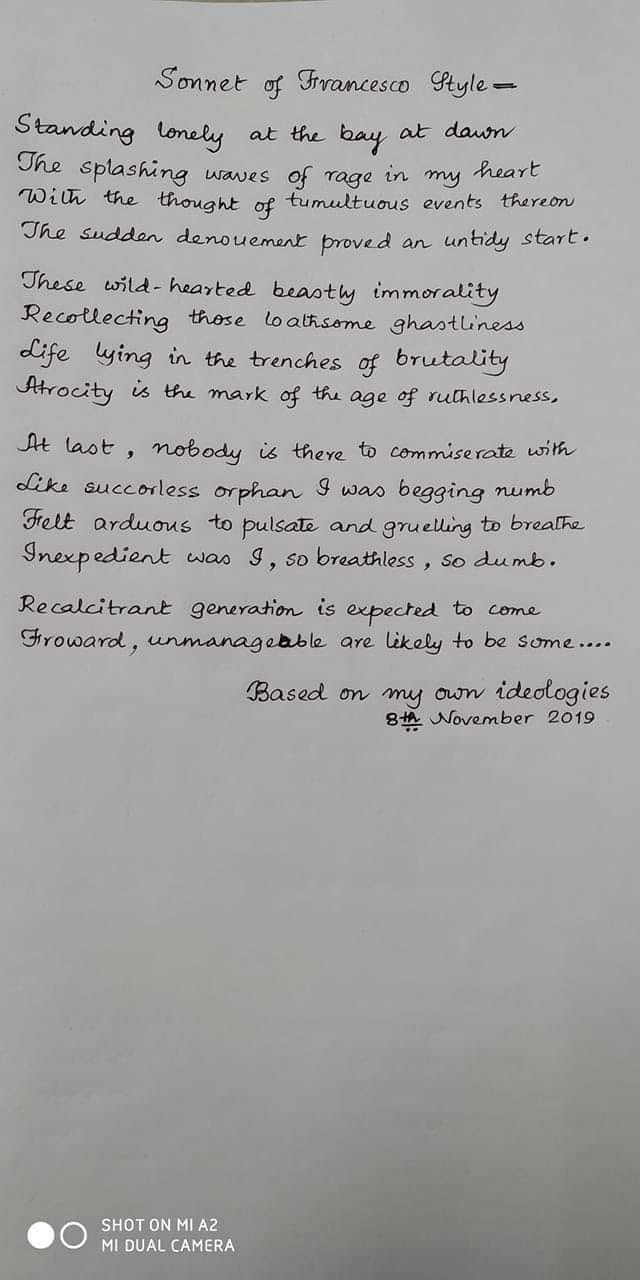 Sonnet of Francesco Style —
Standing lonely at the bay at dawn
The splashing waves of rage in my heart
With the thought of tumultuous events thereon
The sudden denouement proved an untidy start.
These wild-hearted beastly immorality
Recollecting those loathsome ghastliness
Life lying in the trenches of brutality
Atrocity is the mark of the age of ruthlessness.
At last, nobody is there to commiserate with
Like succorless orphan I was begging numb
Felt arduous to pulsate and gruelling to breathe
Inexpedient was I, so breathless, so dumb.
Recalcitrant generation is expected to come
Froward, unmanageable are likely to be some....
Based on my own ideologies
8th November 2019
SHOT ON MI A2
MI DUAL CAMERA